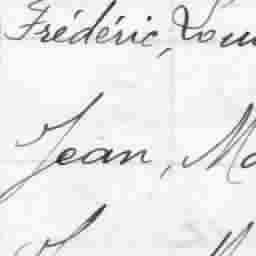 Frédéric, Lou
Jean, Ma